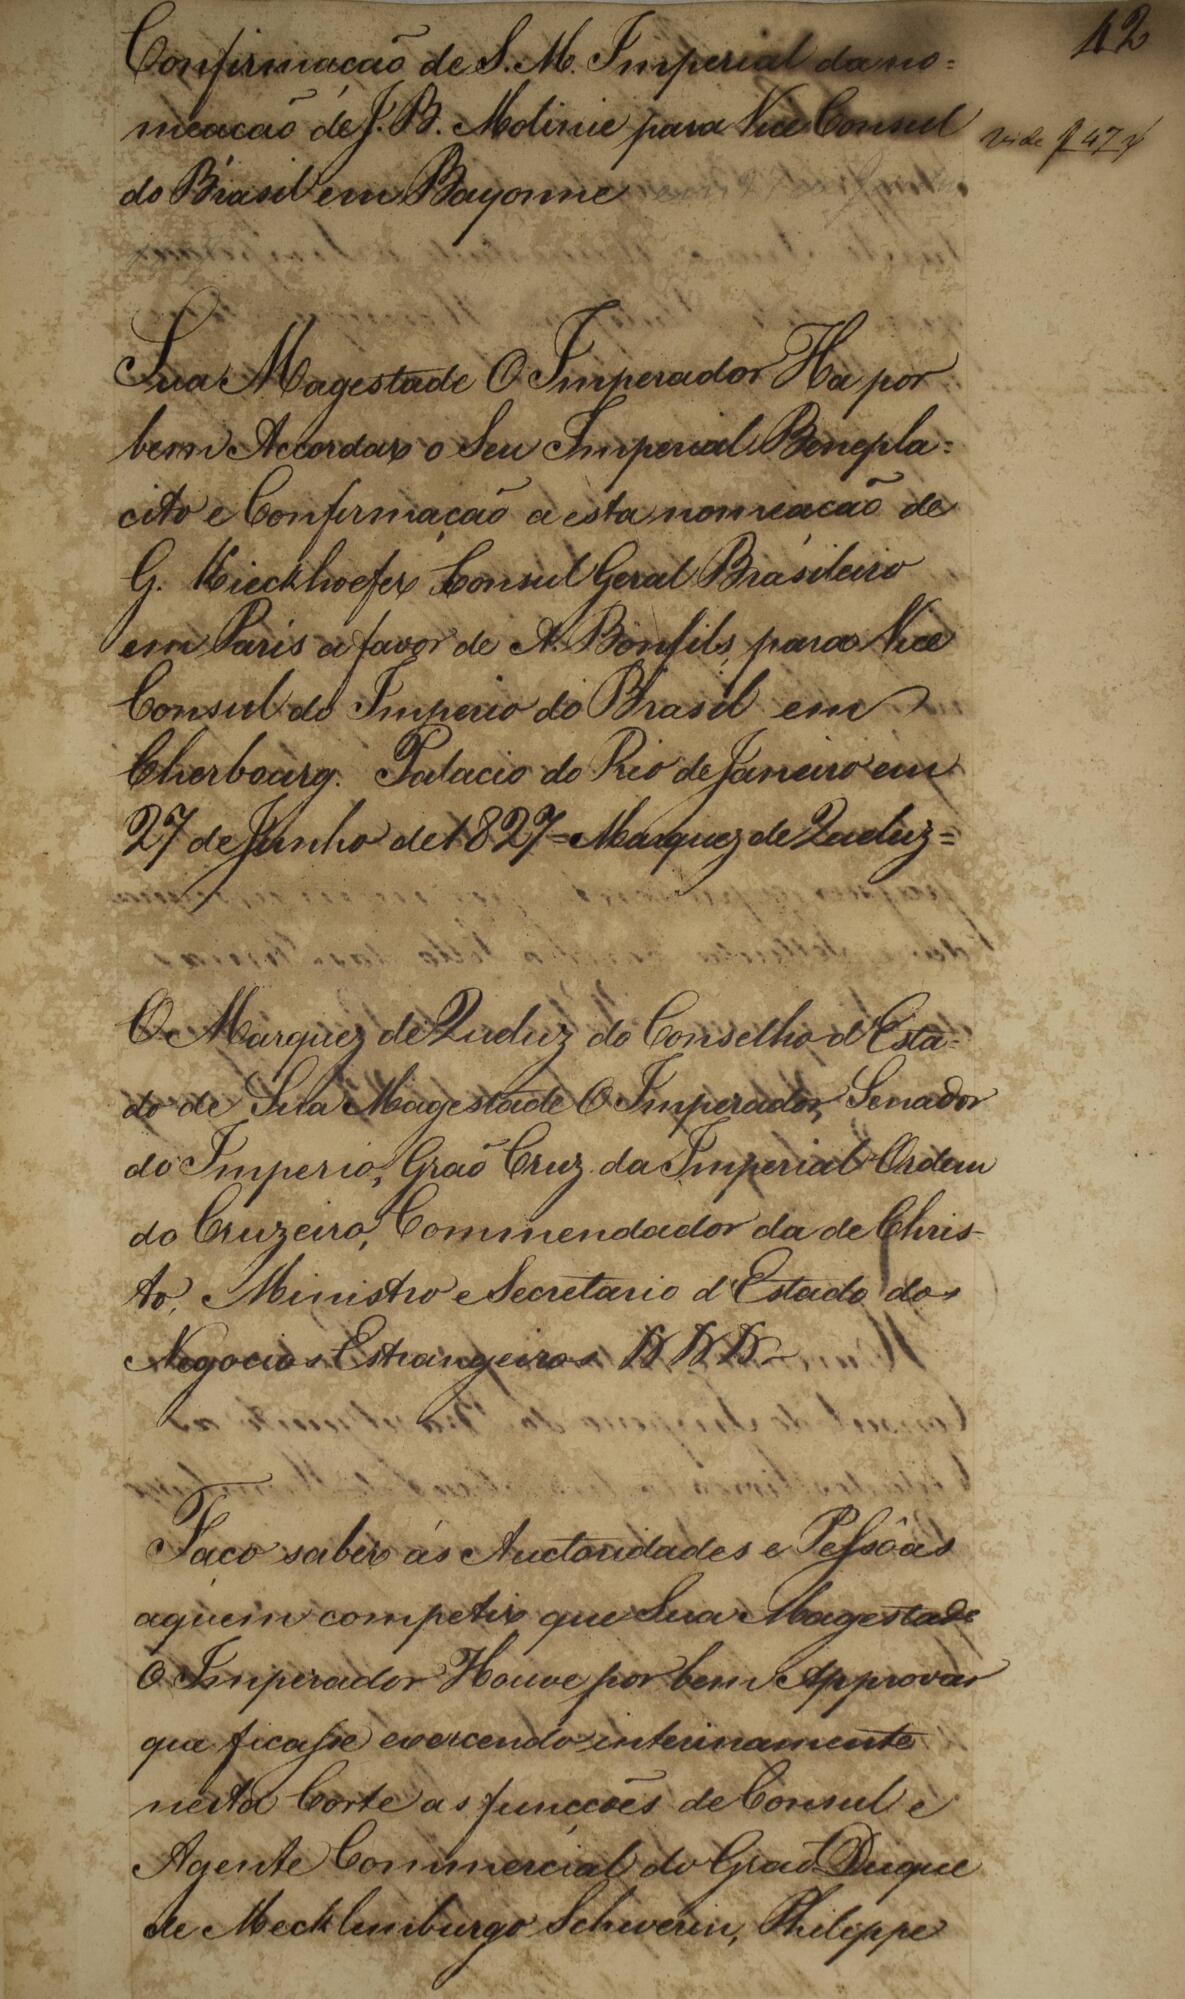 42
Confirmacaõ de S. M. Imperial da no=
meacaõ de J. B. Molinie para Vice Consul
vide f 47 v
do Brasil em Bayonne
Sua Magestade O Imperador Ha por
bem Accordar o Seu Imperial Benepla=
cito e Confirmaçaõ a esta nomeacaõ de
G. Kieckhoefer Consul Geral Brasileiro
em Paris a favor de A. Bonfils para Vice
Consul do Imperio do Brasil em
Cherbourg. Palacio do Rio de Janeiro em
27 de Junho de 1827 = Marquez de Queluz =
O Marquez de Queluz do Conselho d'Esta-
do de Sua Magestade O Imperador, Senador
do Imperio, Graõ Cruz da Imperial Ordem
do Cruzeiro, Commendador da de Chris-
to, Ministro e Secretario d'Estado dos
Negocios Estrangeiros
Faço saber ás Auctoridades e Pessôas
aquem competir que Sua Magestade
O Imperador Houve por bem Approvar
que ficasse exercendo interinamente
nesta Corte as funcções de Consul e
Agente Commercial do Graõ Duque
de Mecklenburgo Schwerin, Philippe